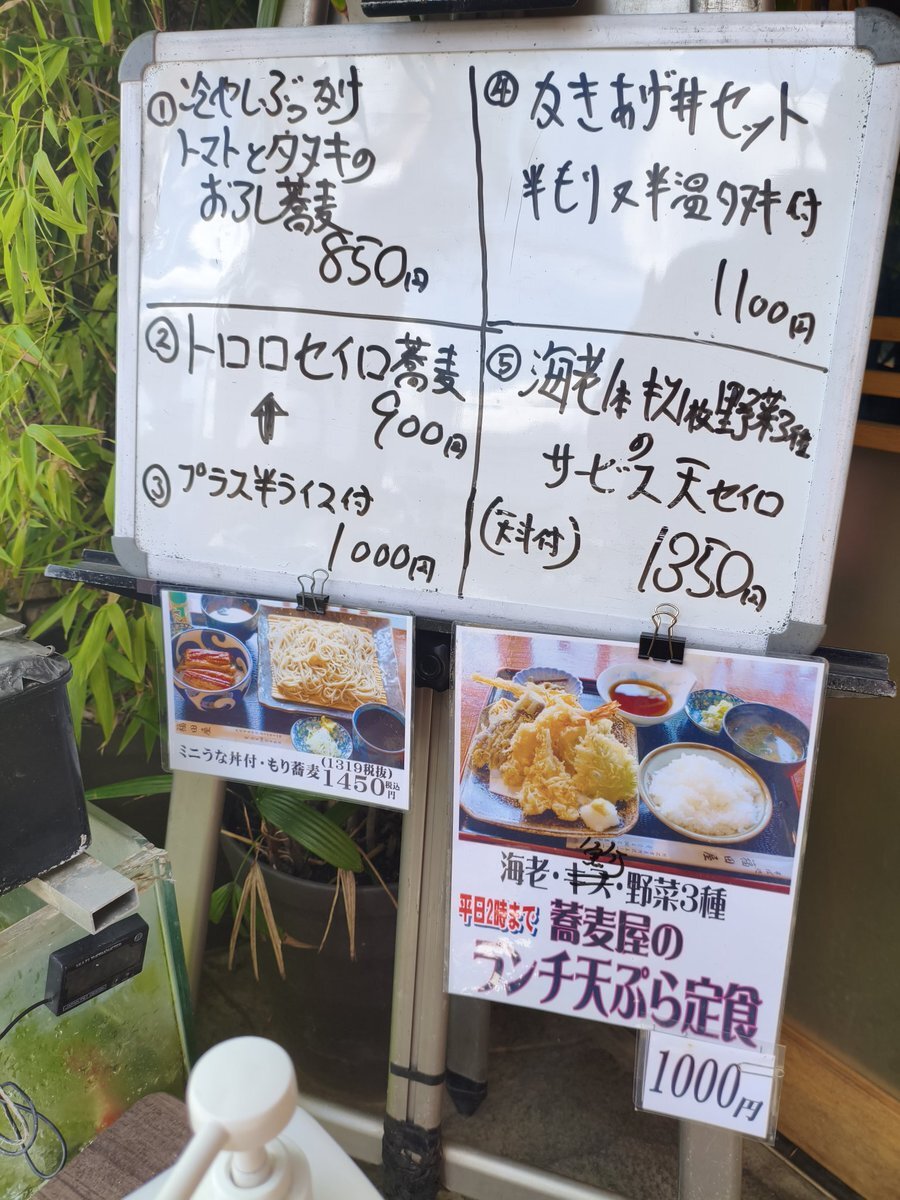 ① 冷やしぶっかけ
トマトとタヌキの
おろし蕎麦
850円
② トロロセイロ蕎麦
900円
↑
③ プラス半ライス付
1000円
④ かきあげ丼セット
半もり又半温タヌキ付
1100円
⑤ 海老1本キス1枚野菜3種
の
サービス天セイロ
(天汁付)
1350円
ミニうな丼付・もり蕎麦
(1319税抜)
1450円税込
海老・キス・野菜3種
平日2時まで
蕎麦屋の
ランチ天ぷら定食
1000円